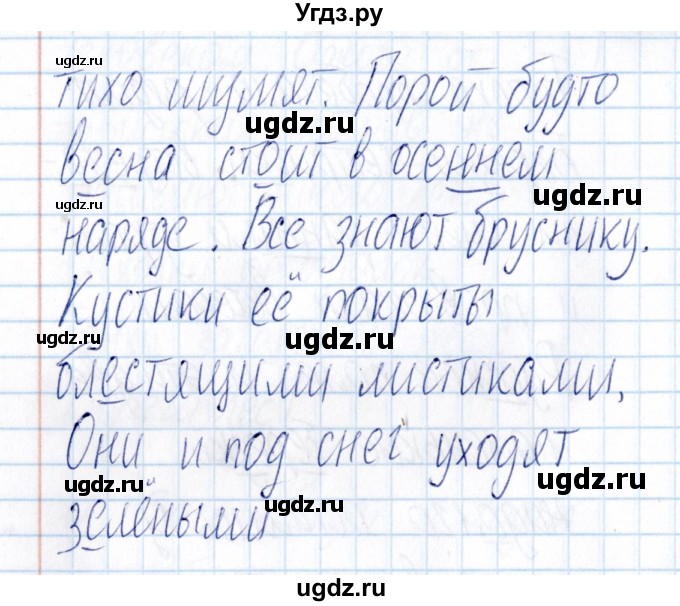 Угдз.ру
ugdz.ru
тихо шумят. Порой будто
ugdz.ru
весна стоит в осеннем
ugdz.ru ugdz.ru
наряде. Все знают бруснику.
ugdz.ru
Кустики её покрыты
ugdz.ru ugdz.ru
блестящими листиками,
Они и под снег уходят
ugdz.ru ugdz.ru
ugdz.ru
зелёными
ugdz.ru